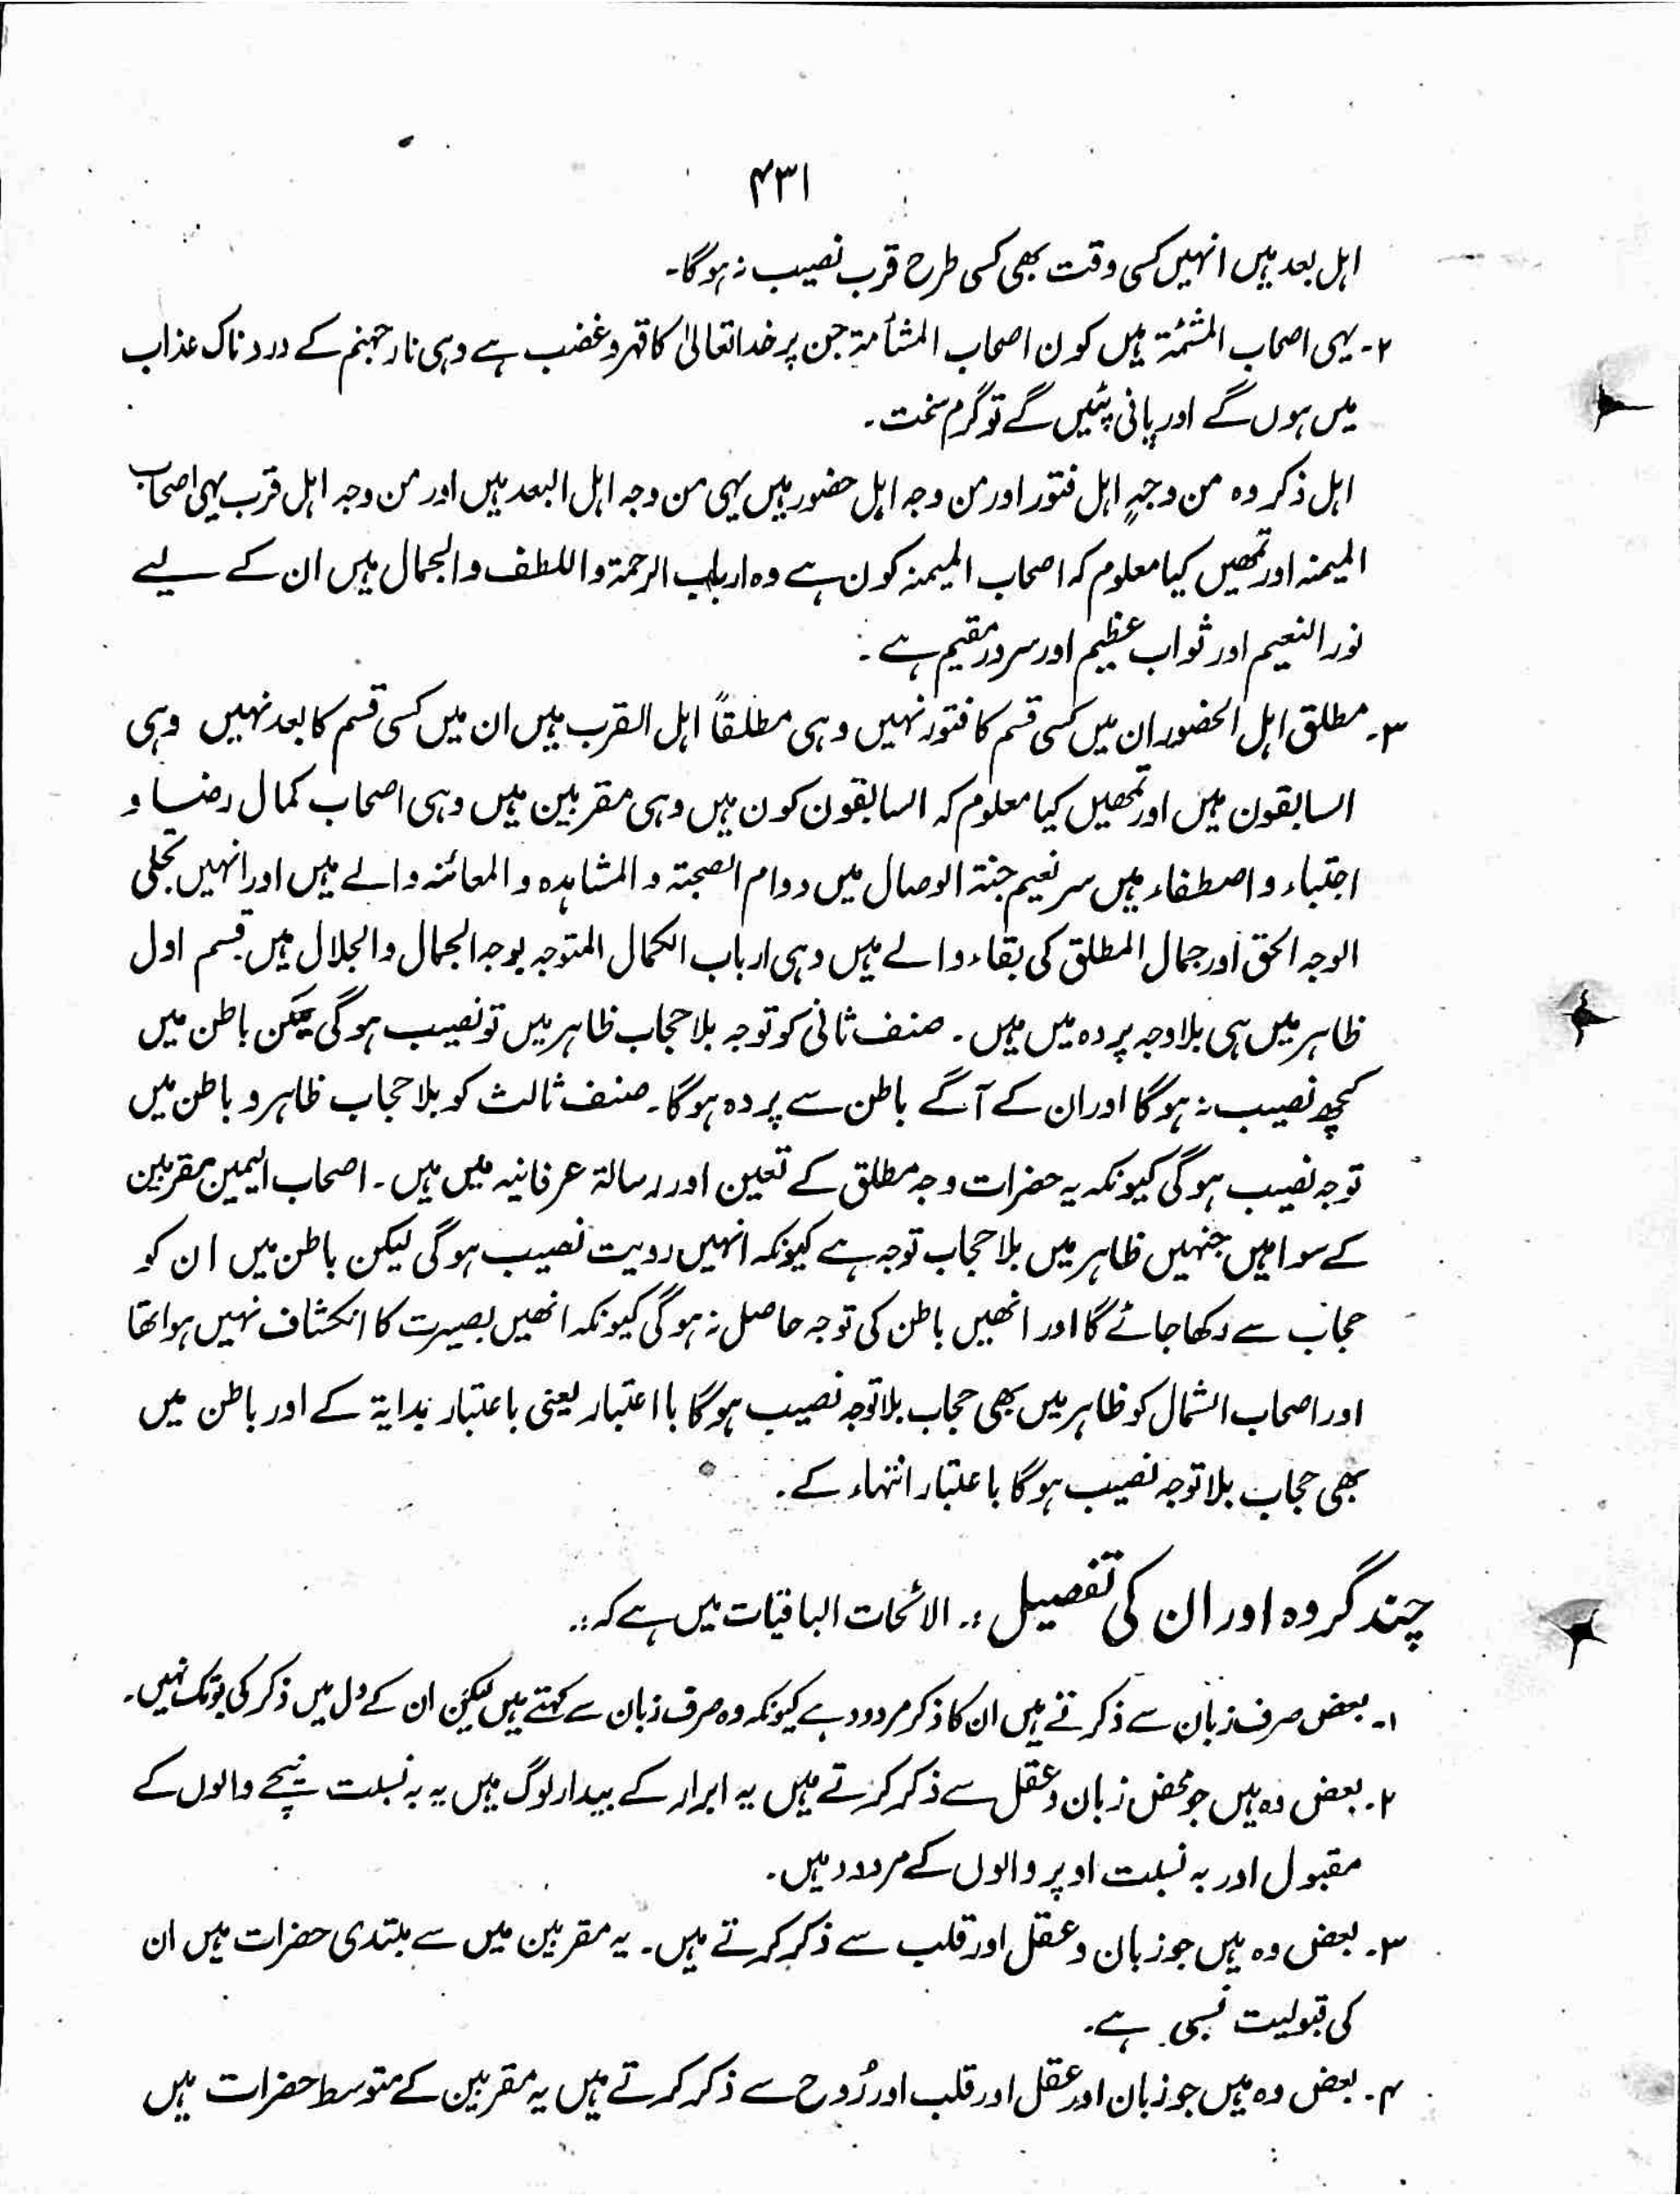 ۴۳۱
اہل بعد ہیں انہیں کسی وقت بھی کسی طرح قرب نصیب نہ ہوگا۔
۲۔ یہی اصحاب المشئمۃ ہیں کون اصحاب المشأمۃ جن پر خدا تعالیٰ کا قہر و غضب ہے وہی نار جہنم کے دردناک عذاب
میں ہوں گے اور پانی پئیں گے تو گرم سخت۔
اہل ذکر وہ من وجہٍ اہل فتور اور من وجہ اہل حضور ہیں یہی من وجہ اہل البعد ہیں اور من وجہ اہل قرب یہی اصحاب
المیمنہ اور تمھیں کیا معلوم کہ اصحاب المیمنہ کون ہے وہ ارباب الرحمۃ و اللطف و الجمال ہیں ان کے لیے
نور النعیم اور ثواب عظیم اور سرور مقیم ہے :
۳۔ مطلق اہل الحضور ان میں کسی قسم کا فتور نہیں وہی مطلقاً اہل القرب ہیں ان میں کسی قسم کا بعد نہیں وہی
السابقون ہیں اور تمھیں کیا معلوم کہ السابقون کون ہیں وہی مقربین ہیں وہی اصحاب کمال رضا و
اجتباء و اصطفاء ہیں سر نعیم جنۃ الوصال میں دوام الصحبۃ و المشاہدہ و المعائنہ والے ہیں اور انہیں تجلی
الوجہ الحق اور جمال المطلق کی بقاء والے ہیں وہی ارباب الکمال المتوجہ بوجہ الجمال والجلال ہیں قسم اول
ظاہر میں ہی بلا وجہ پردہ میں ہیں۔ صنف ثانی کو توجہ بلا حجاب ظاہر میں تو نصیب ہوگی لیکن باطن میں
کچھ نصیب نہ ہوگا اور ان کے آگے باطن سے پردہ ہوگا۔ صنف ثالث کو بلا حجاب ظاہر و باطن میں
توجہ نصیب ہوگی کیونکہ یہ حضرات وجہ مطلق کے تعین اور رسالۃ عرفانیہ میں ہیں۔ اصحاب الیمین مقربین
کے سوا ہیں جنہیں ظاہر میں بلا حجاب توجہ ہے کیونکہ انہیں رویت نصیب ہوگی لیکن باطن میں ان کو
حجاب سے رکھا جائے گا اور انھیں باطن کی توجہ حاصل نہ ہوگی کیونکہ انھیں بصیرت کا انکشاف نہیں ہوا تھا
اور اصحاب الشمال کو ظاہر میں بھی حجاب بلا توجہ نصیب ہوگا با اعتبار یعنی باعتبار بدایۃ کے اور باطن میں
بھی حجاب بلا توجہ نصیب ہوگا باعتبار انتہاء کے۔
چند گروہ اور ان کی تفصیل :۔ الائحات الباقیات میں ہے کہ :۔
۱۔ بعض صرف زبان سے ذکرتے ہیں ان کا ذکر مردود ہے کیونکہ وہ صرف زبان سے کہتے ہیں لیکن ان کے دل میں ذکر کی بو تک نہیں۔
۲۔ بعض وہ ہیں جو محض زبان و عقل سے ذکر کرتے ہیں یہ ابرار کے بیدار لوگ ہیں یہ بہ نسبت نیچے والوں کے
مقبول اور بہ نسبت اوپر والوں کے مردود ہیں۔
۳۔ بعض وہ ہیں جو زبان و عقل اور قلب سے ذکر کرتے ہیں۔ یہ مقربین میں سے مبتدی حضرات ہیں ان
کی قبولیت نسبی ہے۔
۴۔ بعض وہ ہیں جو زبان اور عقل اور قلب اور رُوح سے ذکر کرتے ہیں یہ مقربین کے متوسط حضرات ہیں